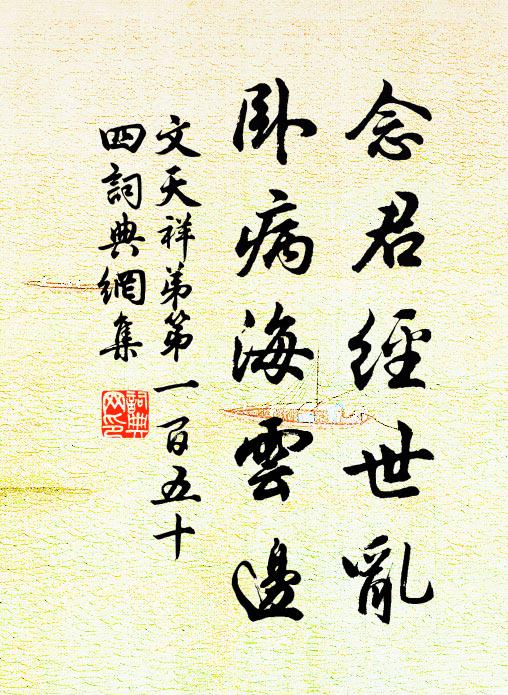 念君經世亂
卧病海雲邊
文天祥弟第一百五十
四詞典網集
詞典网印